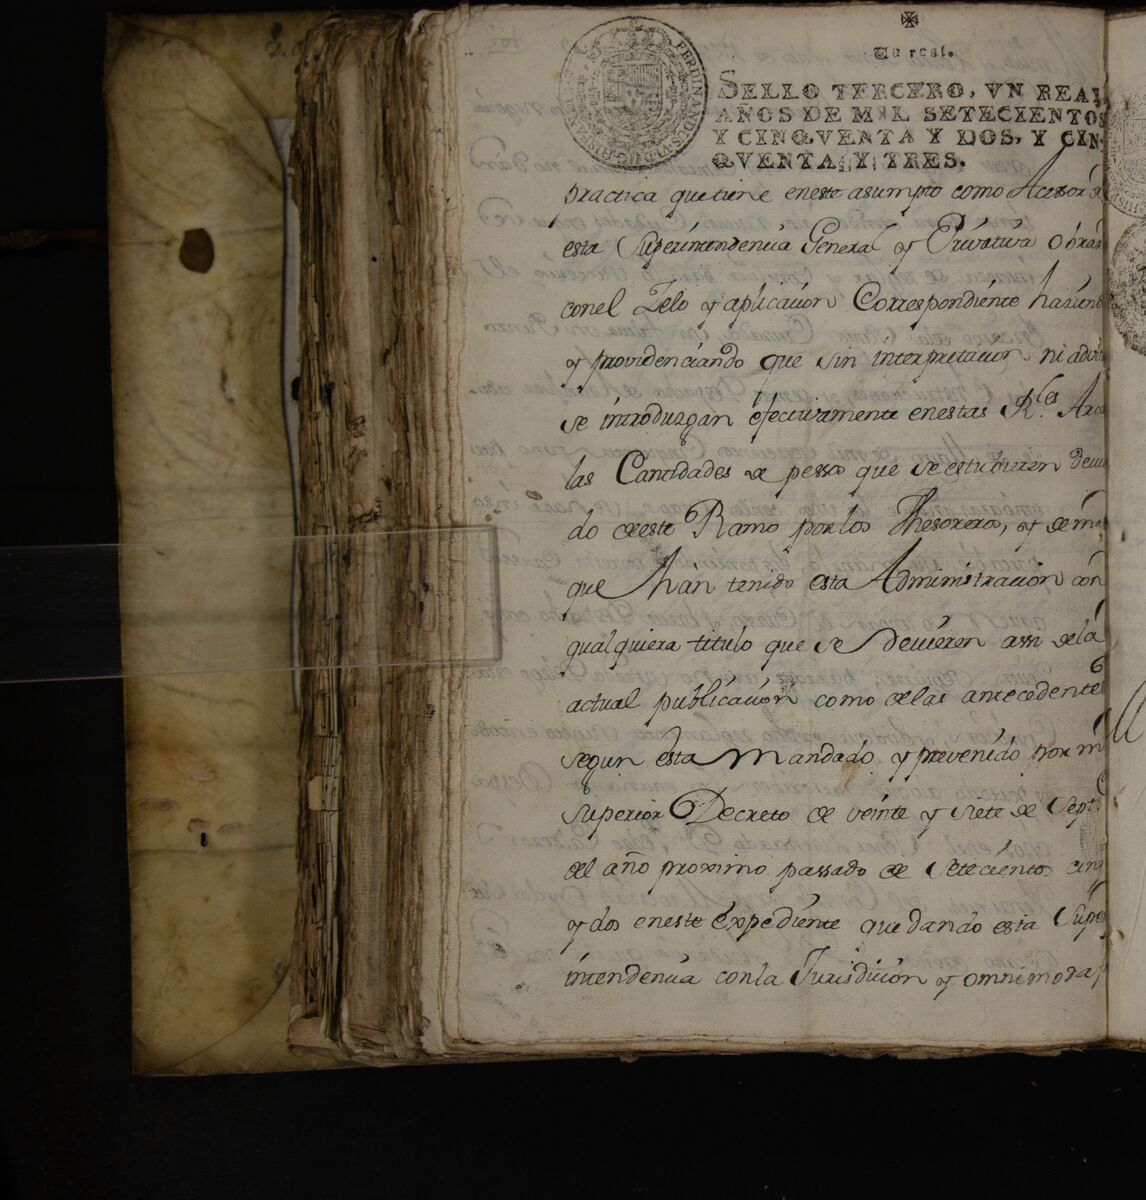 Un real.
SELLO TERCERO, VN REAL
AÑOS DE MIL SETECIENTOS
Y CINQVENTA Y DOS, Y CIN-
QVENTA Y TRES.
practica que tiene eneste asumpto como Acessor
esta Superintendencia General y Privativa obrar
conel Zelo y aplicacion Correspondiente
y providenciando que sin interpretacion ni
se introduzgan efectivamente enestas R.les
las Cantidades de pessos que se estubieren
do deeste Ramo porlos Thesoreros, y de
que han tenido esta Administracion con
qualquiera titulo que se devieren assi dela
actual publicacion como delas antecedentes
segun esta mandado y prevenido por mi
superior Decreto de veinte y siete de Sept.
del año proximo passado de Setecientos
y dos eneste expediente quedando esta
intendencia conla Jurisdicion y omnimoda